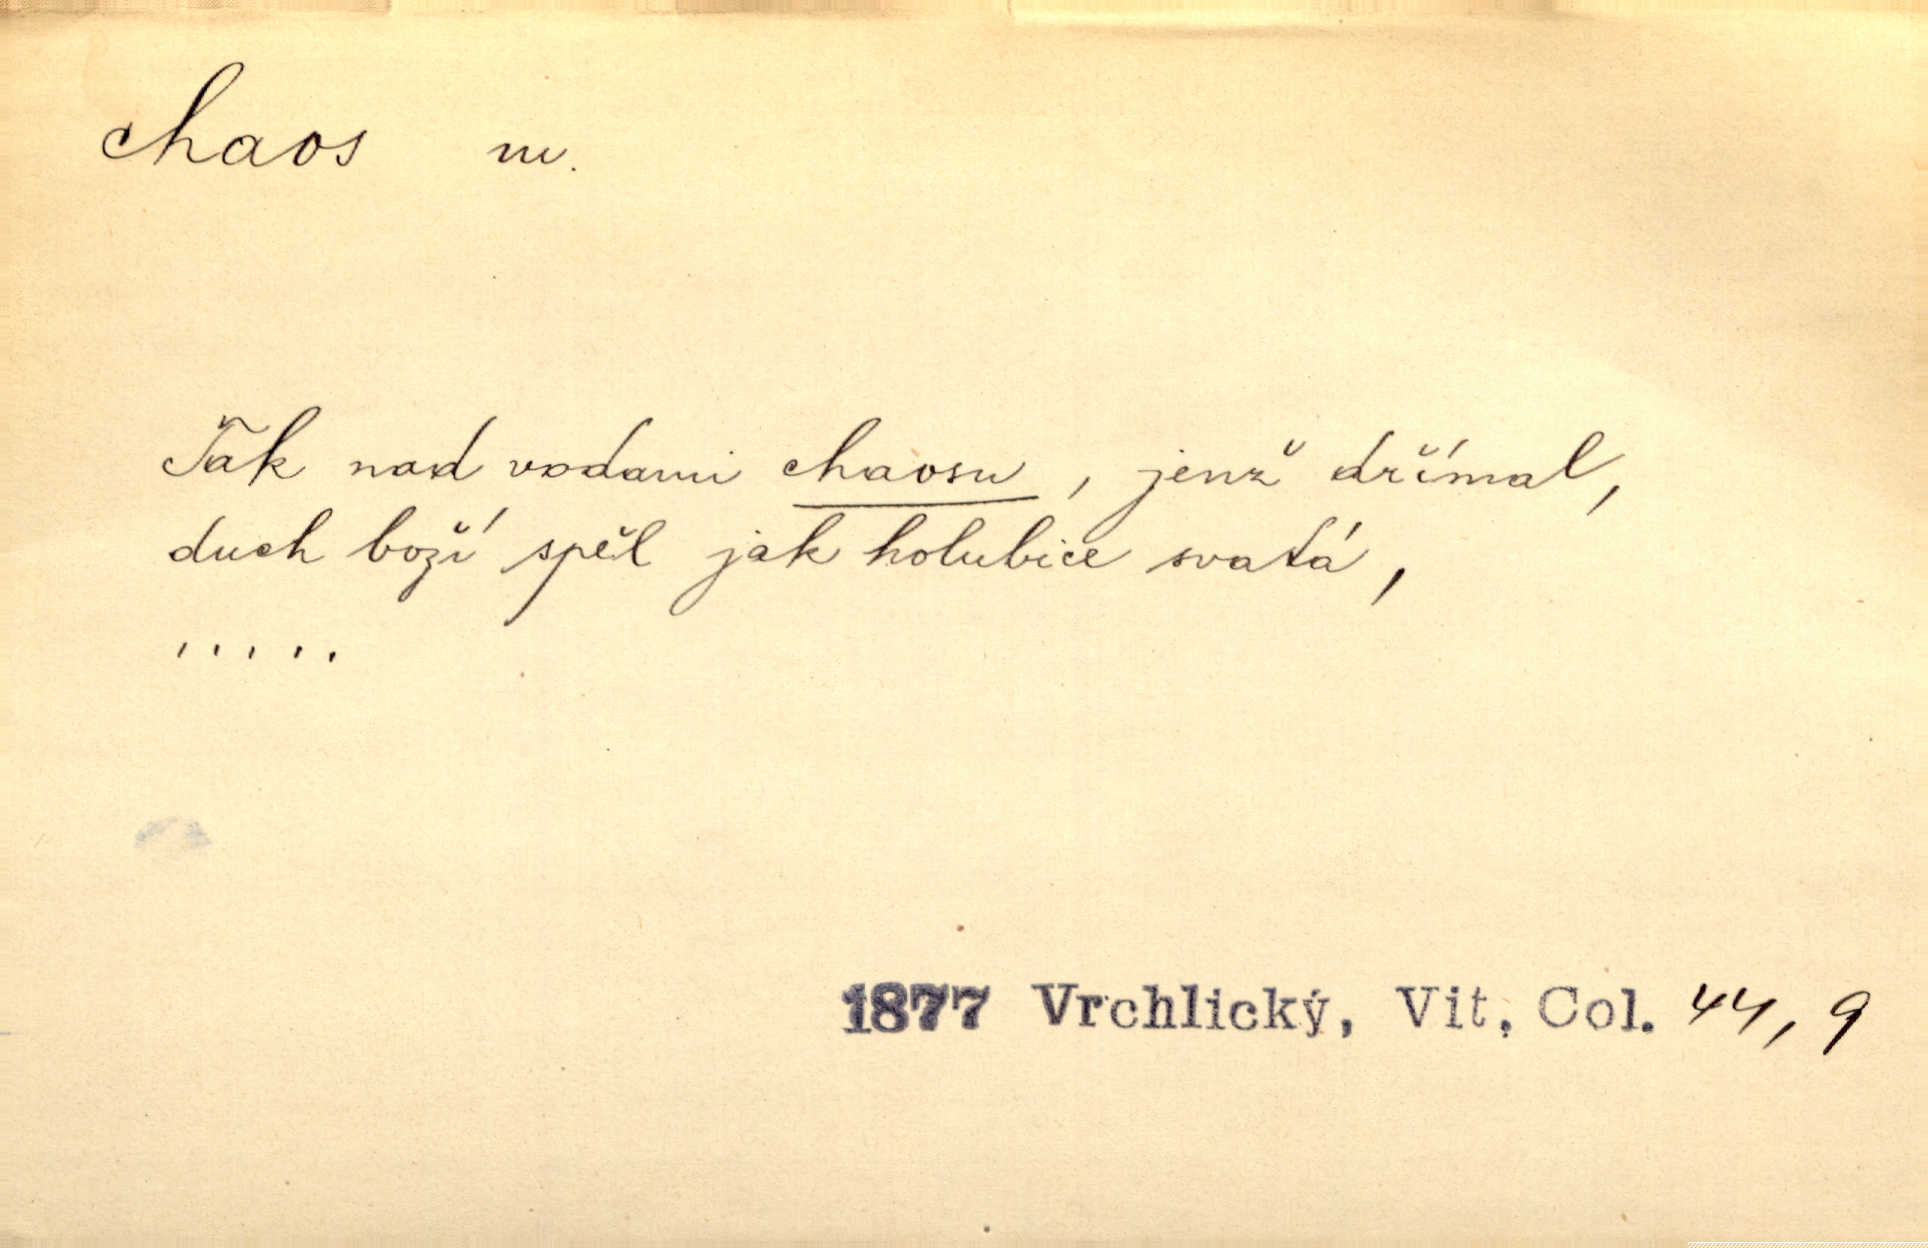 chaos m.
Tak nad vodami chaosu, jenž dřímal,
duch boží spěl jak holubice svatá,
.....
1877 Vrchlický, Vit. Col. 44, 9